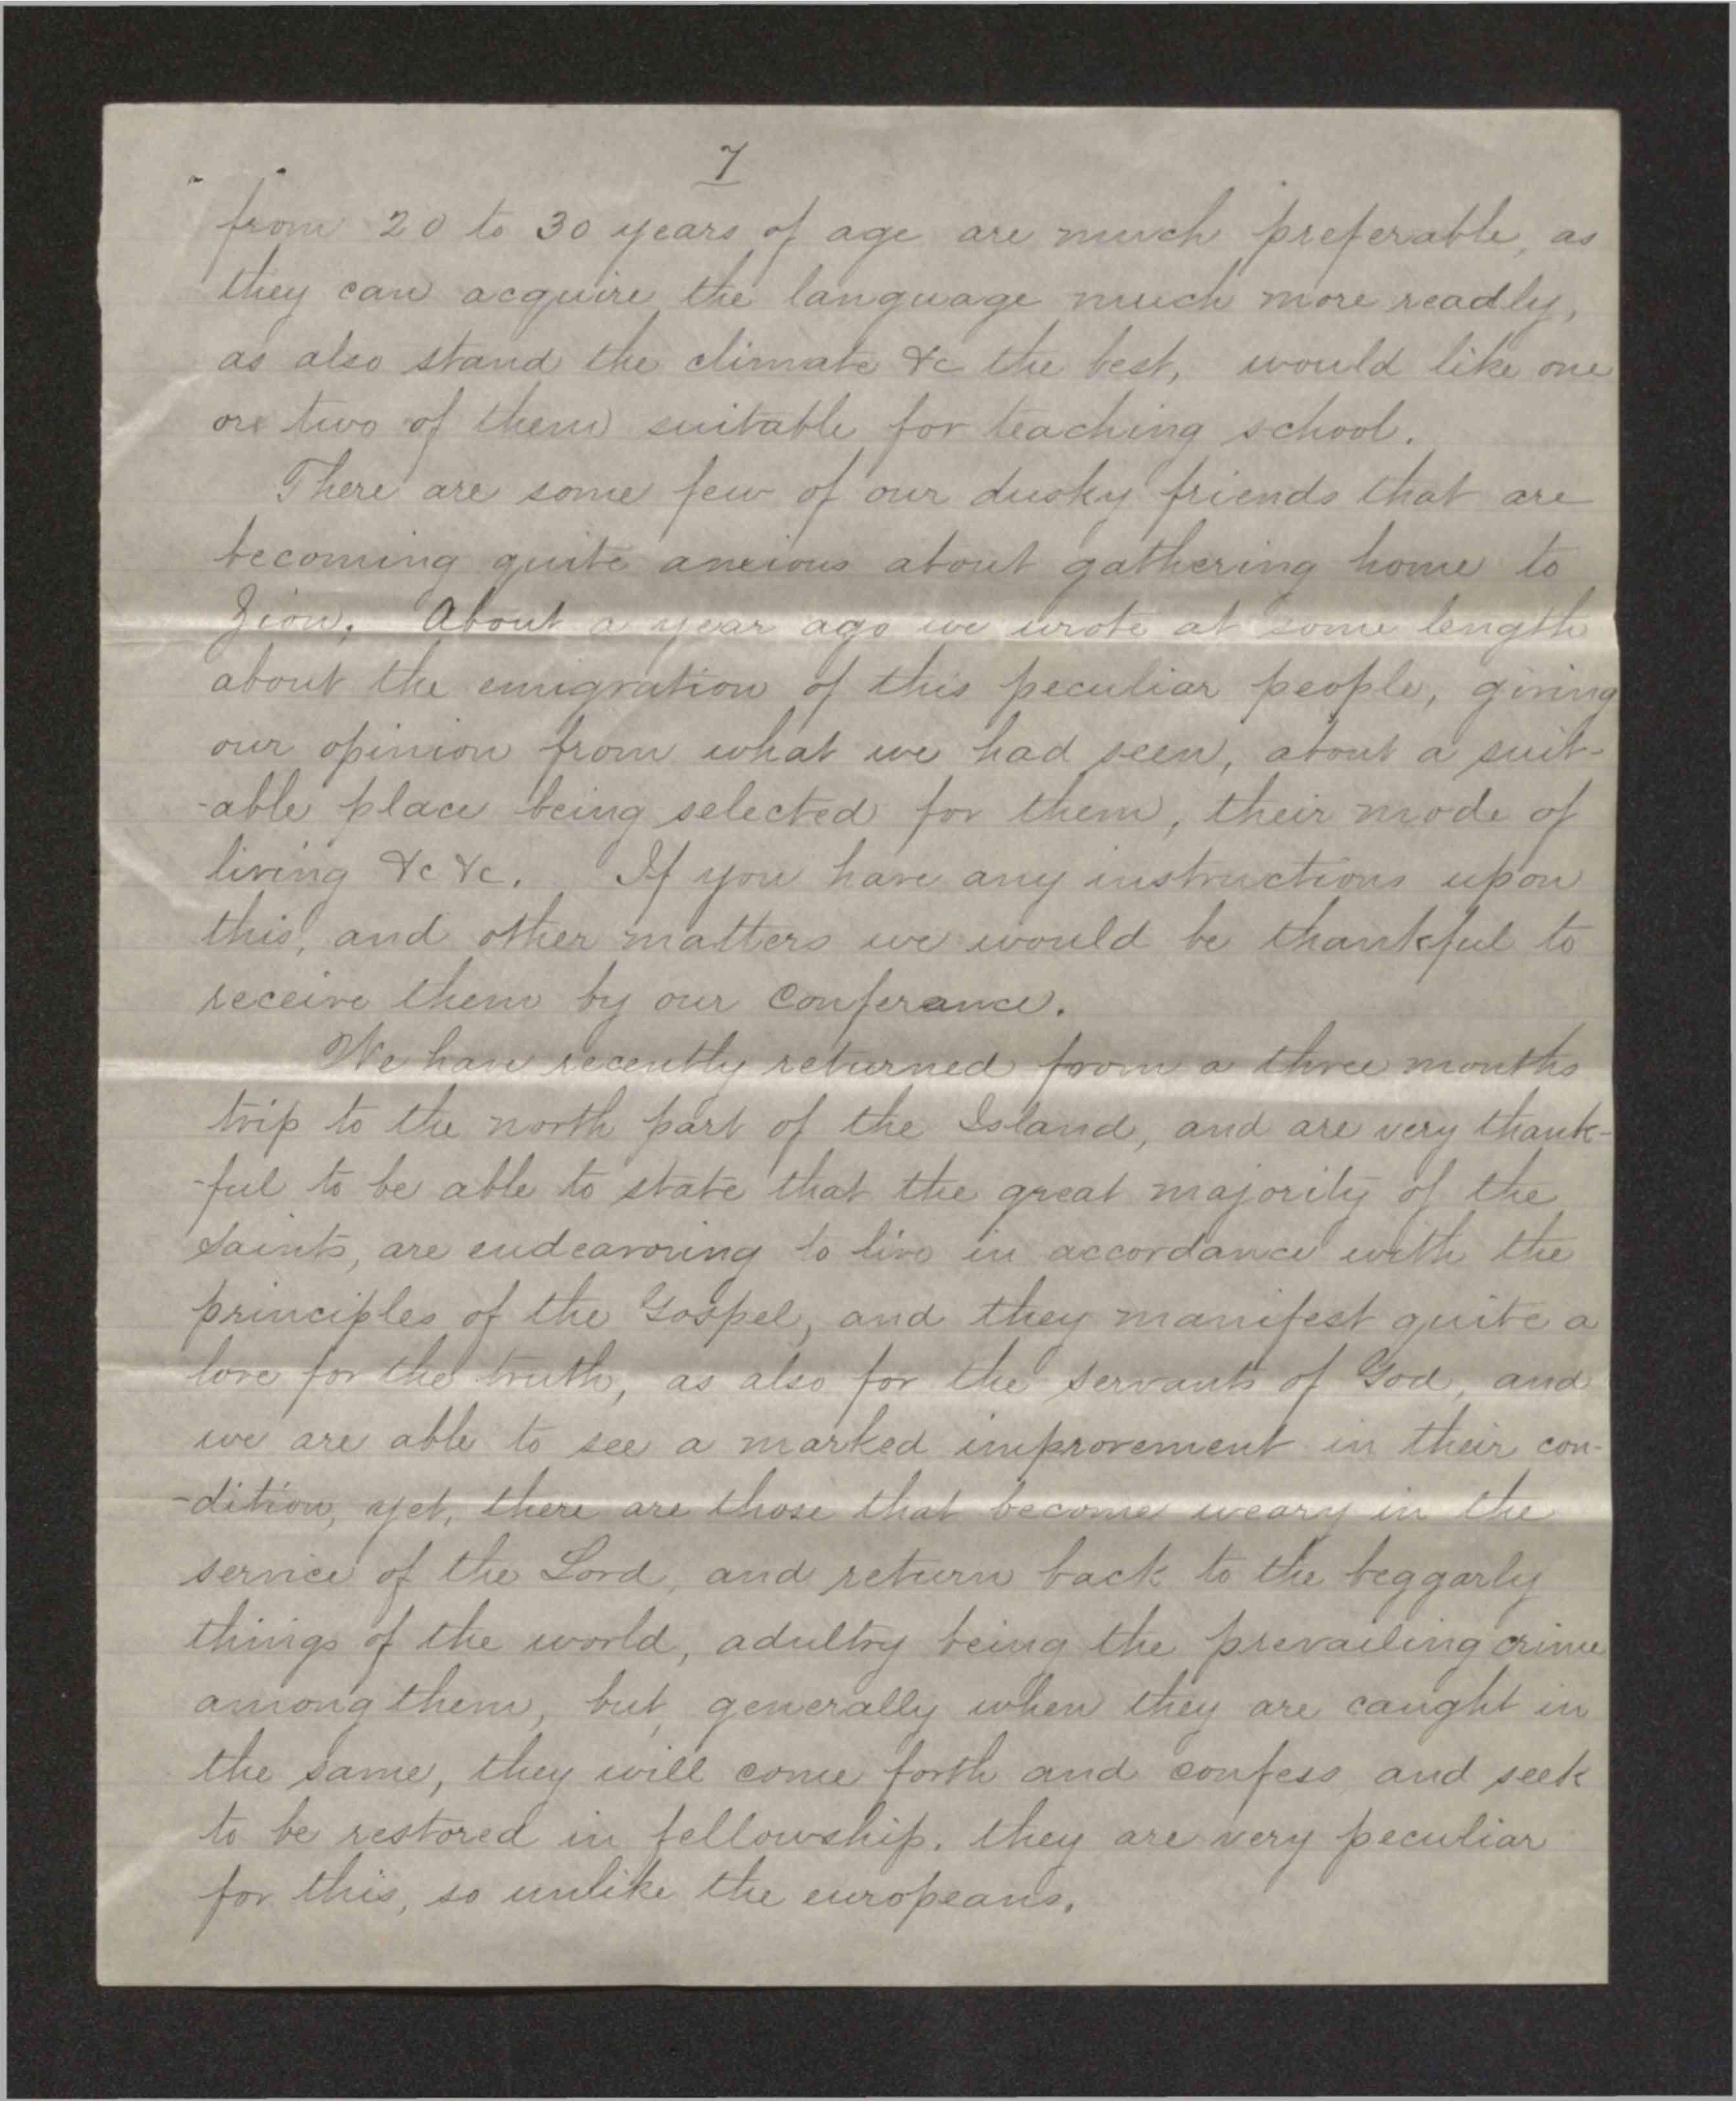 7
from 20 to 30 years of age are much preferable, as
they can acquire the language much more readly,
as also stand the climate &c the best, would like one
ore two of them suitable for teaching school.
There are some few of our dusky friends that are
becoming quite anxious about gathering home to
Zion. About a year ago we wrote at some length
about the emigration of this peculiar people, giving
our opinion from what we had seen, about a suit-
-able place being selected for them, their mode of
living &c &c. If you have any instructions upon
this, and other matters we would be thankful to
receive them by our conferance.
We have recently returned from a three months
trip to the north part of the Island, and are very thank-
-ful to be able to state that the great majority of the
saints, are endeavoring to live in accordance with the
principles of the Gospel, and they manifest quite a
love for the truth, as also for the servants of God, and
we are able to see a marked improvement in their con-
-dition, yet, there are those that become weary in the
service of the Lord, and return back to the beggarly
things of the world, adultry being the prevailing crime
among them, but, generally when they are caught in
the same, they will come forth and confess, and seek
to be restored in fellowship. they are very peculiar
for this, so unlike the europeans.